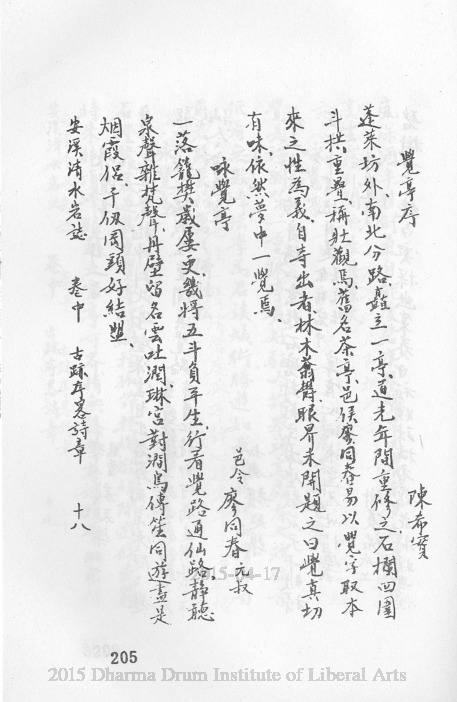 覺亭序
陳希實
蓬萊坊外、南北分路、矗立一亭、道光年間重修之、石欄四圍
斗拱重疊、稱壯觀焉、舊名茶亭、邑侯廖同春易以覺字、取本
來之性為義、自寺出者、林木蓊鬱、眼界未開、題之曰覺、真切
有味、依然夢中一覺焉、
咏覺亭
邑令 廖同春元叔
一落籠樊歲屢更、幾將五斗負平生、行看覺路通仙路、靜聽
泉聲雜梵聲、丹壁留名雲吐潤、琳宮對澗鳥傳笙、同遊盡是
烟霞侶、千仞岡頭好結盟、
安溪清水岩誌 卷中 古跡序墓詩章 十八
205
2015-04-17
2015 Dharma Drum Institute of Liberal Arts